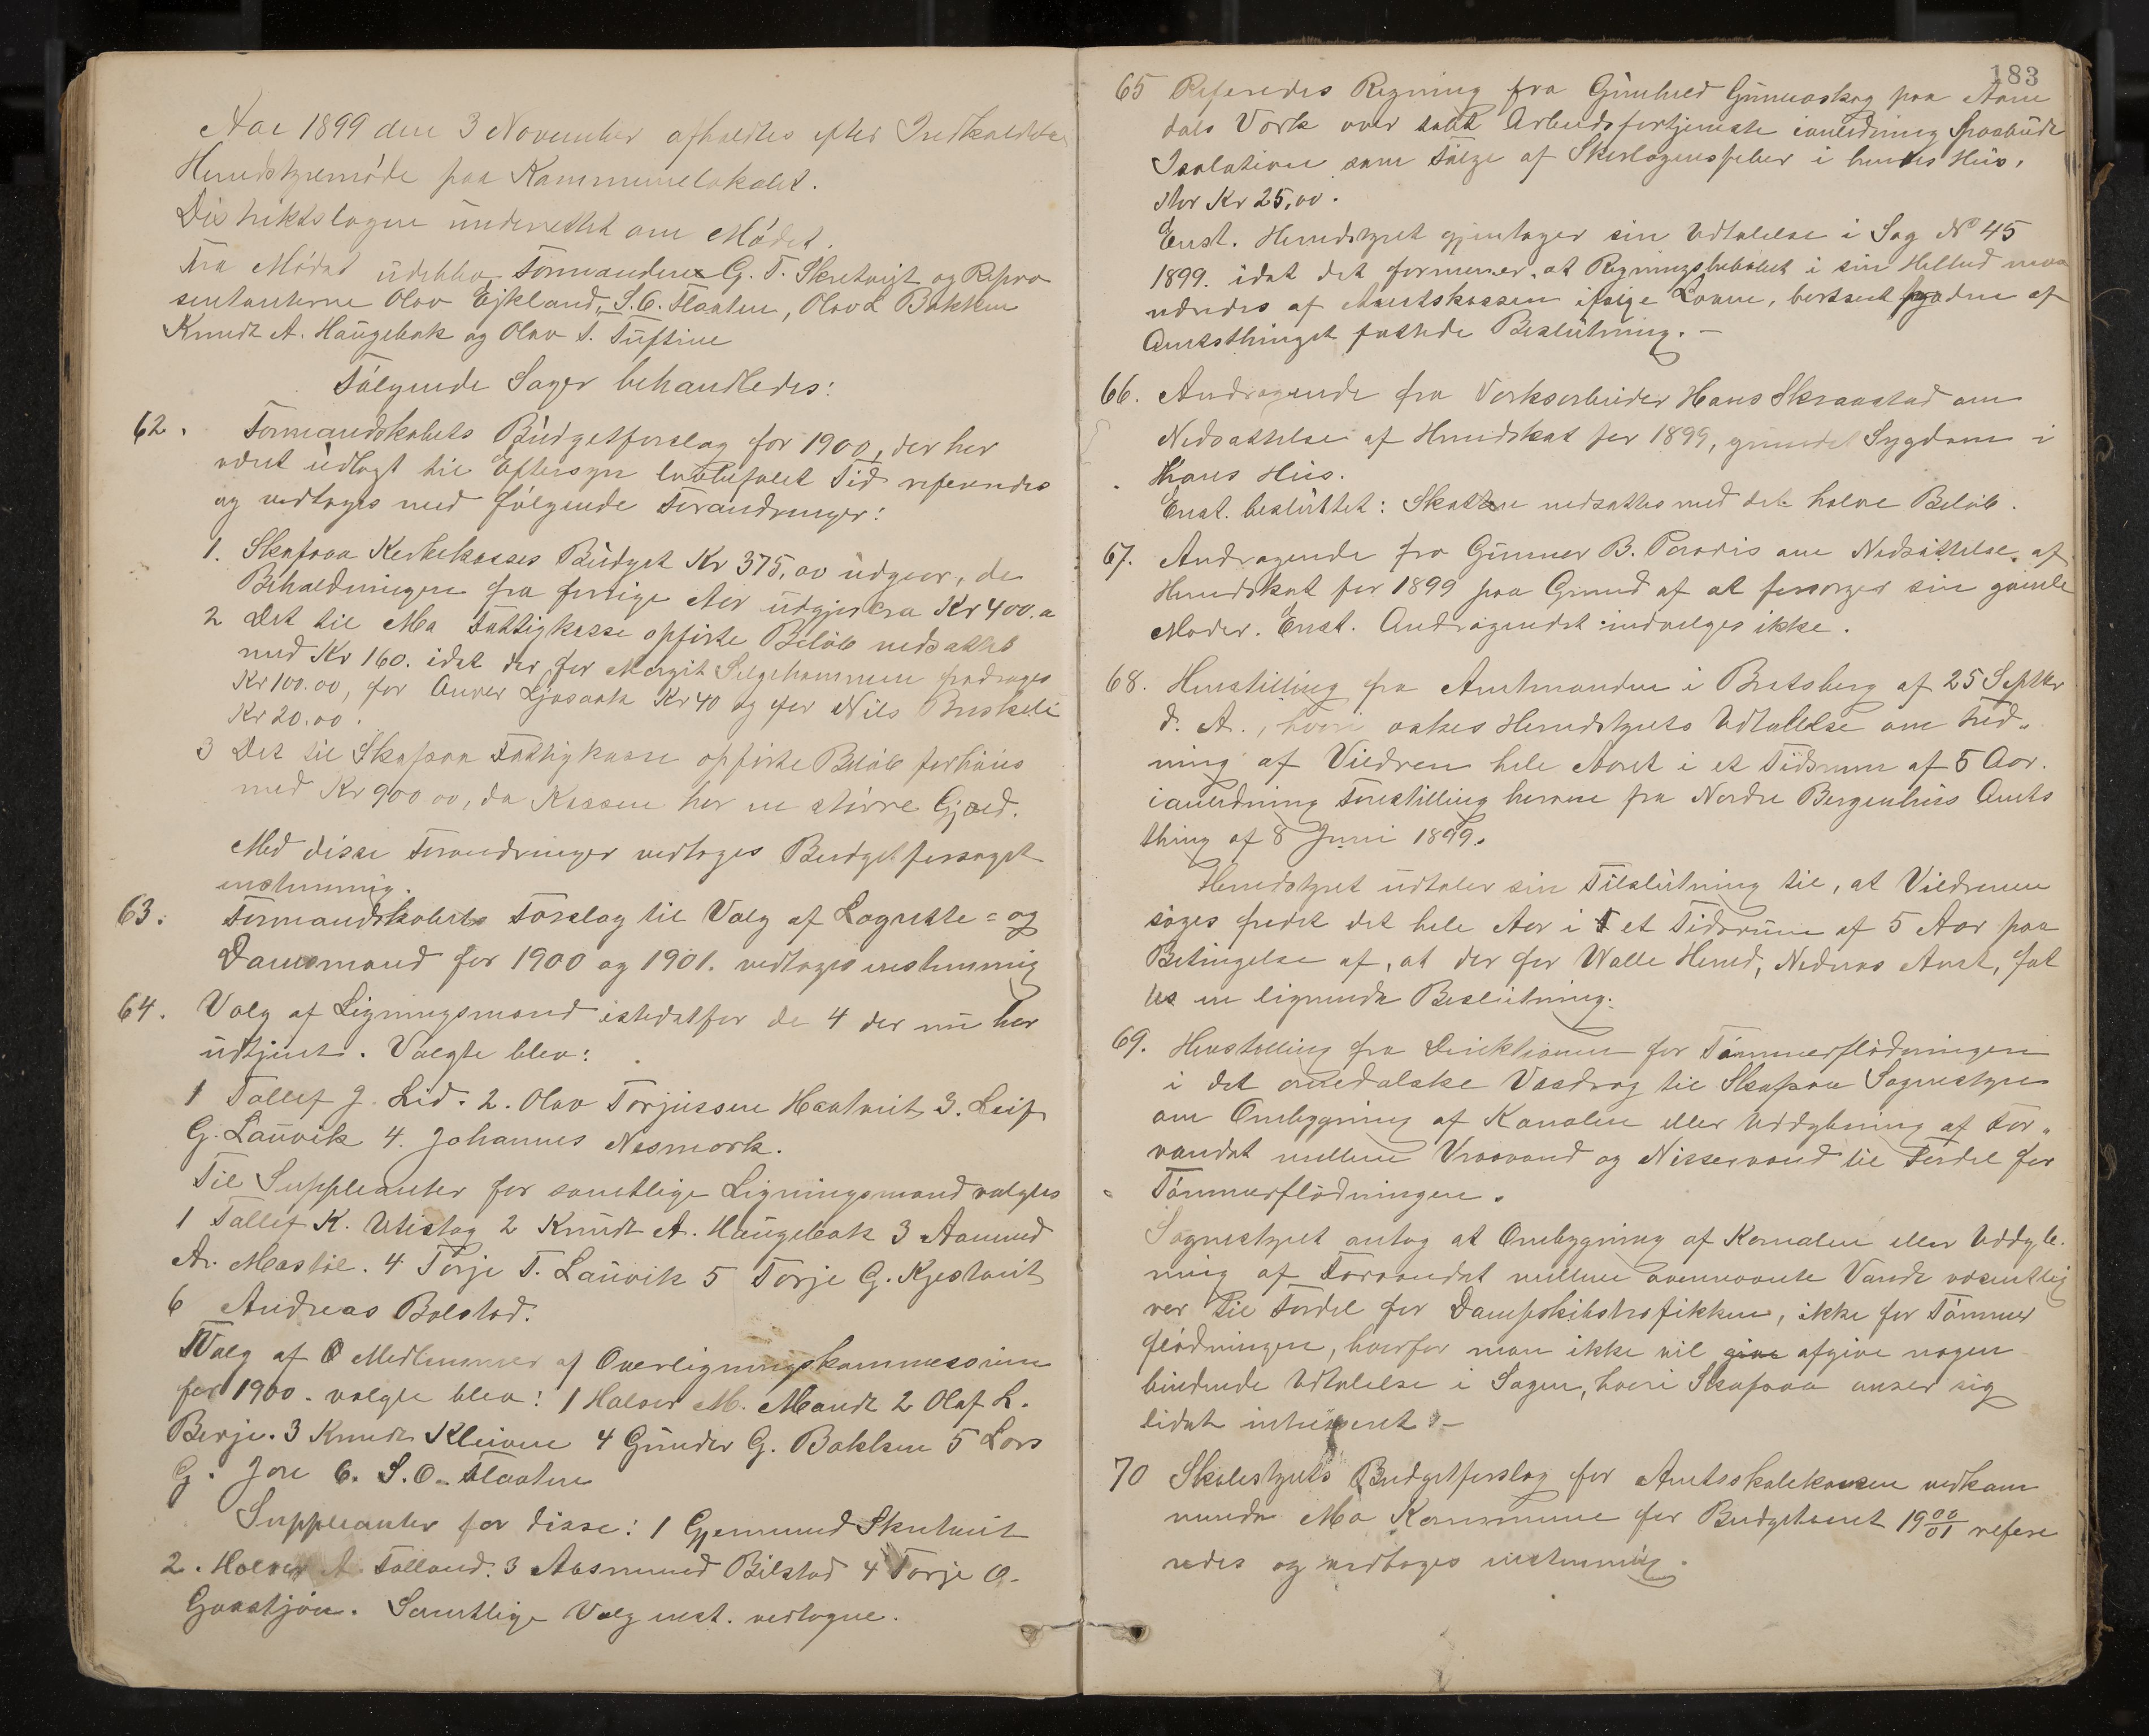 Aar 1899 den 3 November afholdtes efter Indkaldelse
Herredstyremøde paa Kommunelokalet.
Distriktslægen underrettet om Mødet.
Fra Mødet udeblev Formanden G. T. Skretvigt og Repræ
sentanterne Olav Ejkland, S. O. Flaaten, Olav L Bakken
Knudt A. Haugebak og Olav S. Tuftine
Følgende Sager behandledes:
62. Formandskabets Budgetforslag for 1900, der har
været udlagt til Eftersyn lovbefalet Tid refereredes
og vedtoges med følgende Forandringer:
1. Skafsaa Kirkekasses Budget Kr 375,00 udgaar, da
Beholdningen fra forrige Aar udgjør ca Kr 400.00
2 Det til Mo Fattigkasse opførte Beløb nedsættes
med Kr 160. idet der for Margit Selgehammen fradrages
Kr 100.00, for Anver Ljosaak Kr 40 og for Nils Buskeli
Kr 20.00.
3 Det til Skafsaa Fattigkasse opførte Beløb forhøies
med Kr 900 00, da Kassen har en større Gjæld.
Med disse Forandringer vedtoges Budgetforslaget
enstemmig.
63. Formandskabets Forslag til Valg af Lagrette= og
Domsmænd for 1900 og 1901. vedtoges enstemmig
64. Valg af Ligningsmænd istedetfor de 4 der nu har
udtjent. Valgte blev:
1 Tallef J. Lid. 2. Olav Torjussen Haatveit 3. Leif
G. Lauvik 4. Johannes Nesmork.
Til Suppleanter for samtlige Ligningsmænd valgtes
1 Tallef K. Utistog 2 Knudt A. Haugebak 3 Aamund
A. Mostøl. 4 Torje T. Lauvik 5 Torje G. Kjestveit
6 Andreas Bolstad.
Valg af 6 Medlemmer af Overligningskommissionen
for 1900. valgte blev: 1 Halvor M. Mandt 2 Olaf L.
Berje. 3 Knudt Kleivene 4 Gunder G. Bakken 5 Lars
G. Jore 6. S. O. Flaaten
Suppleanter for disse: 1 Gjermund Skretveit
2. Halvor A. Folland. 3 Aasmund Bilstad 4 Torje O.
Gaastjøn. Samtlige Valg enst. vedtagne.
183
65 Refereredes Regning fra Gunhild Gunnaskog paa Aam
dals Værk over tabt Arbeidsfortjeneste ianledning paabudt
Isolation som Følge af Skarlagensfeber i hendes Hus,
stor Kr 25,00.
Enst. Herredstyret gjentager sin Udtalelse i Sag No 45
1899. idet det formener, at Regningsbeløbet i sin Helhed maa
udredes af Amtskassen ifølge Loven, bortseet fra den af
Amtsthinget fattede Beslutning. —
66. Andragende fra Værksarbeider Hans Skraastad om
Nedsættelse af Herredskat for 1899, grundet Sygdom i
Hans Hus.
Enst. besluttet: Skatten nedsættes med det halve Beløb.
67. Andragende fra Gunner B. Paradis om Nedsættelse af
Herredskat for 1899 paa Grund af at forsørger sin gamle
Moder. Enst. Andragendet indvilges ikke.
68. Henstilling fra Amtmanden i Bratsberg af 25 Septbr
d. A., hvori æskes Herredstyrets Udtalelse om Fred-
ning af Vildren hele Aaret i et Tidsrum af 5 Aar.
ianledning Forestilling herom fra Nordre Bergenhus Amts
thing af 8 Juni 1899.
Herredstyret udtaler sin Tilslutning til, at Vildrenen
søges fredet det hele Aar i et Tidsrum af 5 Aar paa
Betingelse af, at der for Walle Herred, Nedenes Amt, fat
tes en lignende Beslutning.
69. Henstilling fra Direktionen for Tømmerflødningen
i det arendalske Vasdrag til Skafsaa Sognestyre
om Ombygning af Kanalen eller Uddybning af Far-
vandet mellem Vraavand og Nisservand til Fordel for
Tømmerflødningen.
Sognestyret antog at Ombygning af Kanalen eller Uddyb-
ning af Farvandet mellem ovennævnte Vande væsentlig
var til Fordel for Dampskibstrafikken, ikke for Tømmer
flødningen, hvorfor man ikke vil give afgive nogen
bindende Udtalelse i Sagen, hvori Skafsaa anser sig
lidet interesseret. —
70 Skolestyrets Budgetforslag for Amtsskolekassen vedkom
mende Mo Kommune for Budgetaaret 1900/01 refere
redes og vedtoges enstemmig.